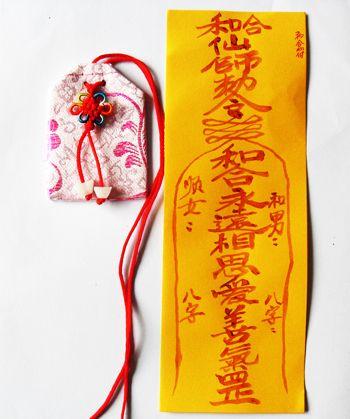 和合符
和合
仙師勅令
和合永遠相思愛善氣罡
和男:
八字:
順女:
八字: